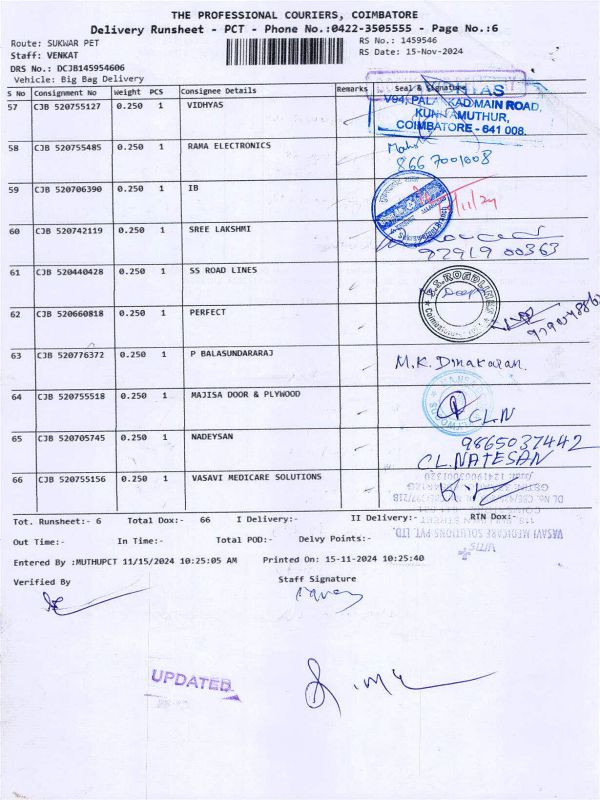 THE PROFESSIONAL COURIERS, COIMBATORE
Delivery Runsheet - PCT - Phone No.:0422-3505555 - Page No.:6
Route: SUKWAR PET RS No.: 1459546
Staff: VENKAT RS Date: 15-Nov-2024
DRS No.: DCJB145954606
Vehicle: Big Bag Delivery
S No Consignment No Weight PCS Consignee Details Remarks Seal & Signature
57 CJB 520755127 0.250 1 VIDHYAS
V94, PALAKKAD MAIN ROAD,
KUNIAMUTHUR,
COIMBATORE - 641 008.
58 CJB 520755485 0.250 1 RAMA ELECTRONICS
866 7001008
59 CJB 520706390 0.250 1 IB
/11/24
60 CJB 520742119 0.250 1 SREE LAKSHMI
92919 00363
61 CJB 520440428 0.250 1 SS ROAD LINES
S.S. ROADLINES
62 CJB 520660818 0.250 1 PERFECT
63 CJB 520776372 0.250 1 P BALASUNDARARAJ
M.K. Dinakaran.
64 CJB 520755518 0.250 1 MAJISA DOOR & PLYWOOD
CL.N
65 CJB 520705745 0.250 1 NADEYSAN
9865037442
CL.NATESAN
66 CJB 520755156 0.250 1 VASAVI MEDICARE SOLUTIONS
VASAVI MEDICARE SOLUTIONS PVT. LTD.
Tot. Runsheet:- 6 Total Dox:- 66 I Delivery:- II Delivery:- RTN Dox:-
Out Time:- In Time:- Total POD:- Delvy Points:-
Entered By :MUTHUPCT 11/15/2024 10:25:05 AM Printed On: 15-11-2024 10:25:40
Verified By Staff Signature
UPDATED